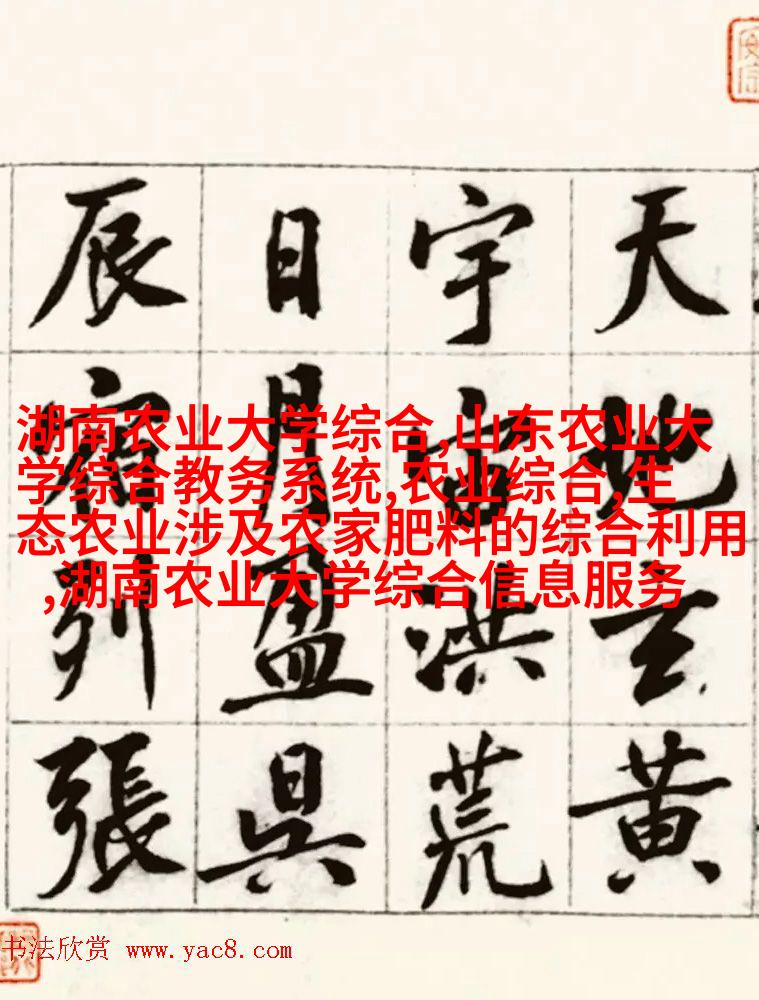 天地玄黄
宇宙洪荒
日月盈昃
辰宿列張
湖南农业大学综合,山东农业大
学综合教务系统,农业综合,生
态农业涉及农家肥料的综合利用
,湖南农业大学综合信息服务
书法欣赏 www.yac8.com